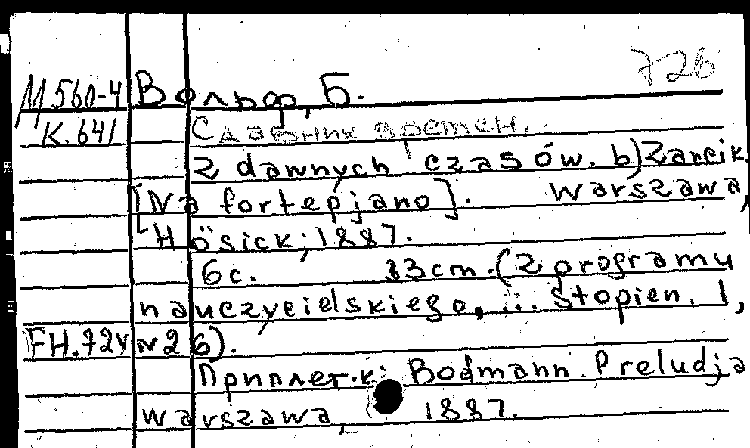 726
М 560-4 Вольф, Б.
К. 641 С давних времен.
Z dawnych czasów. b) Zarcik
[Na fortepjano]. Warszawa,
Hösick, 1887.
6с. 33cm. (Z programu
nauczycielskiego, ... Stopien. 1,
FH.724 N 26).
Приплет. к: Bodmann. Preludja
Warszawa, 1887.